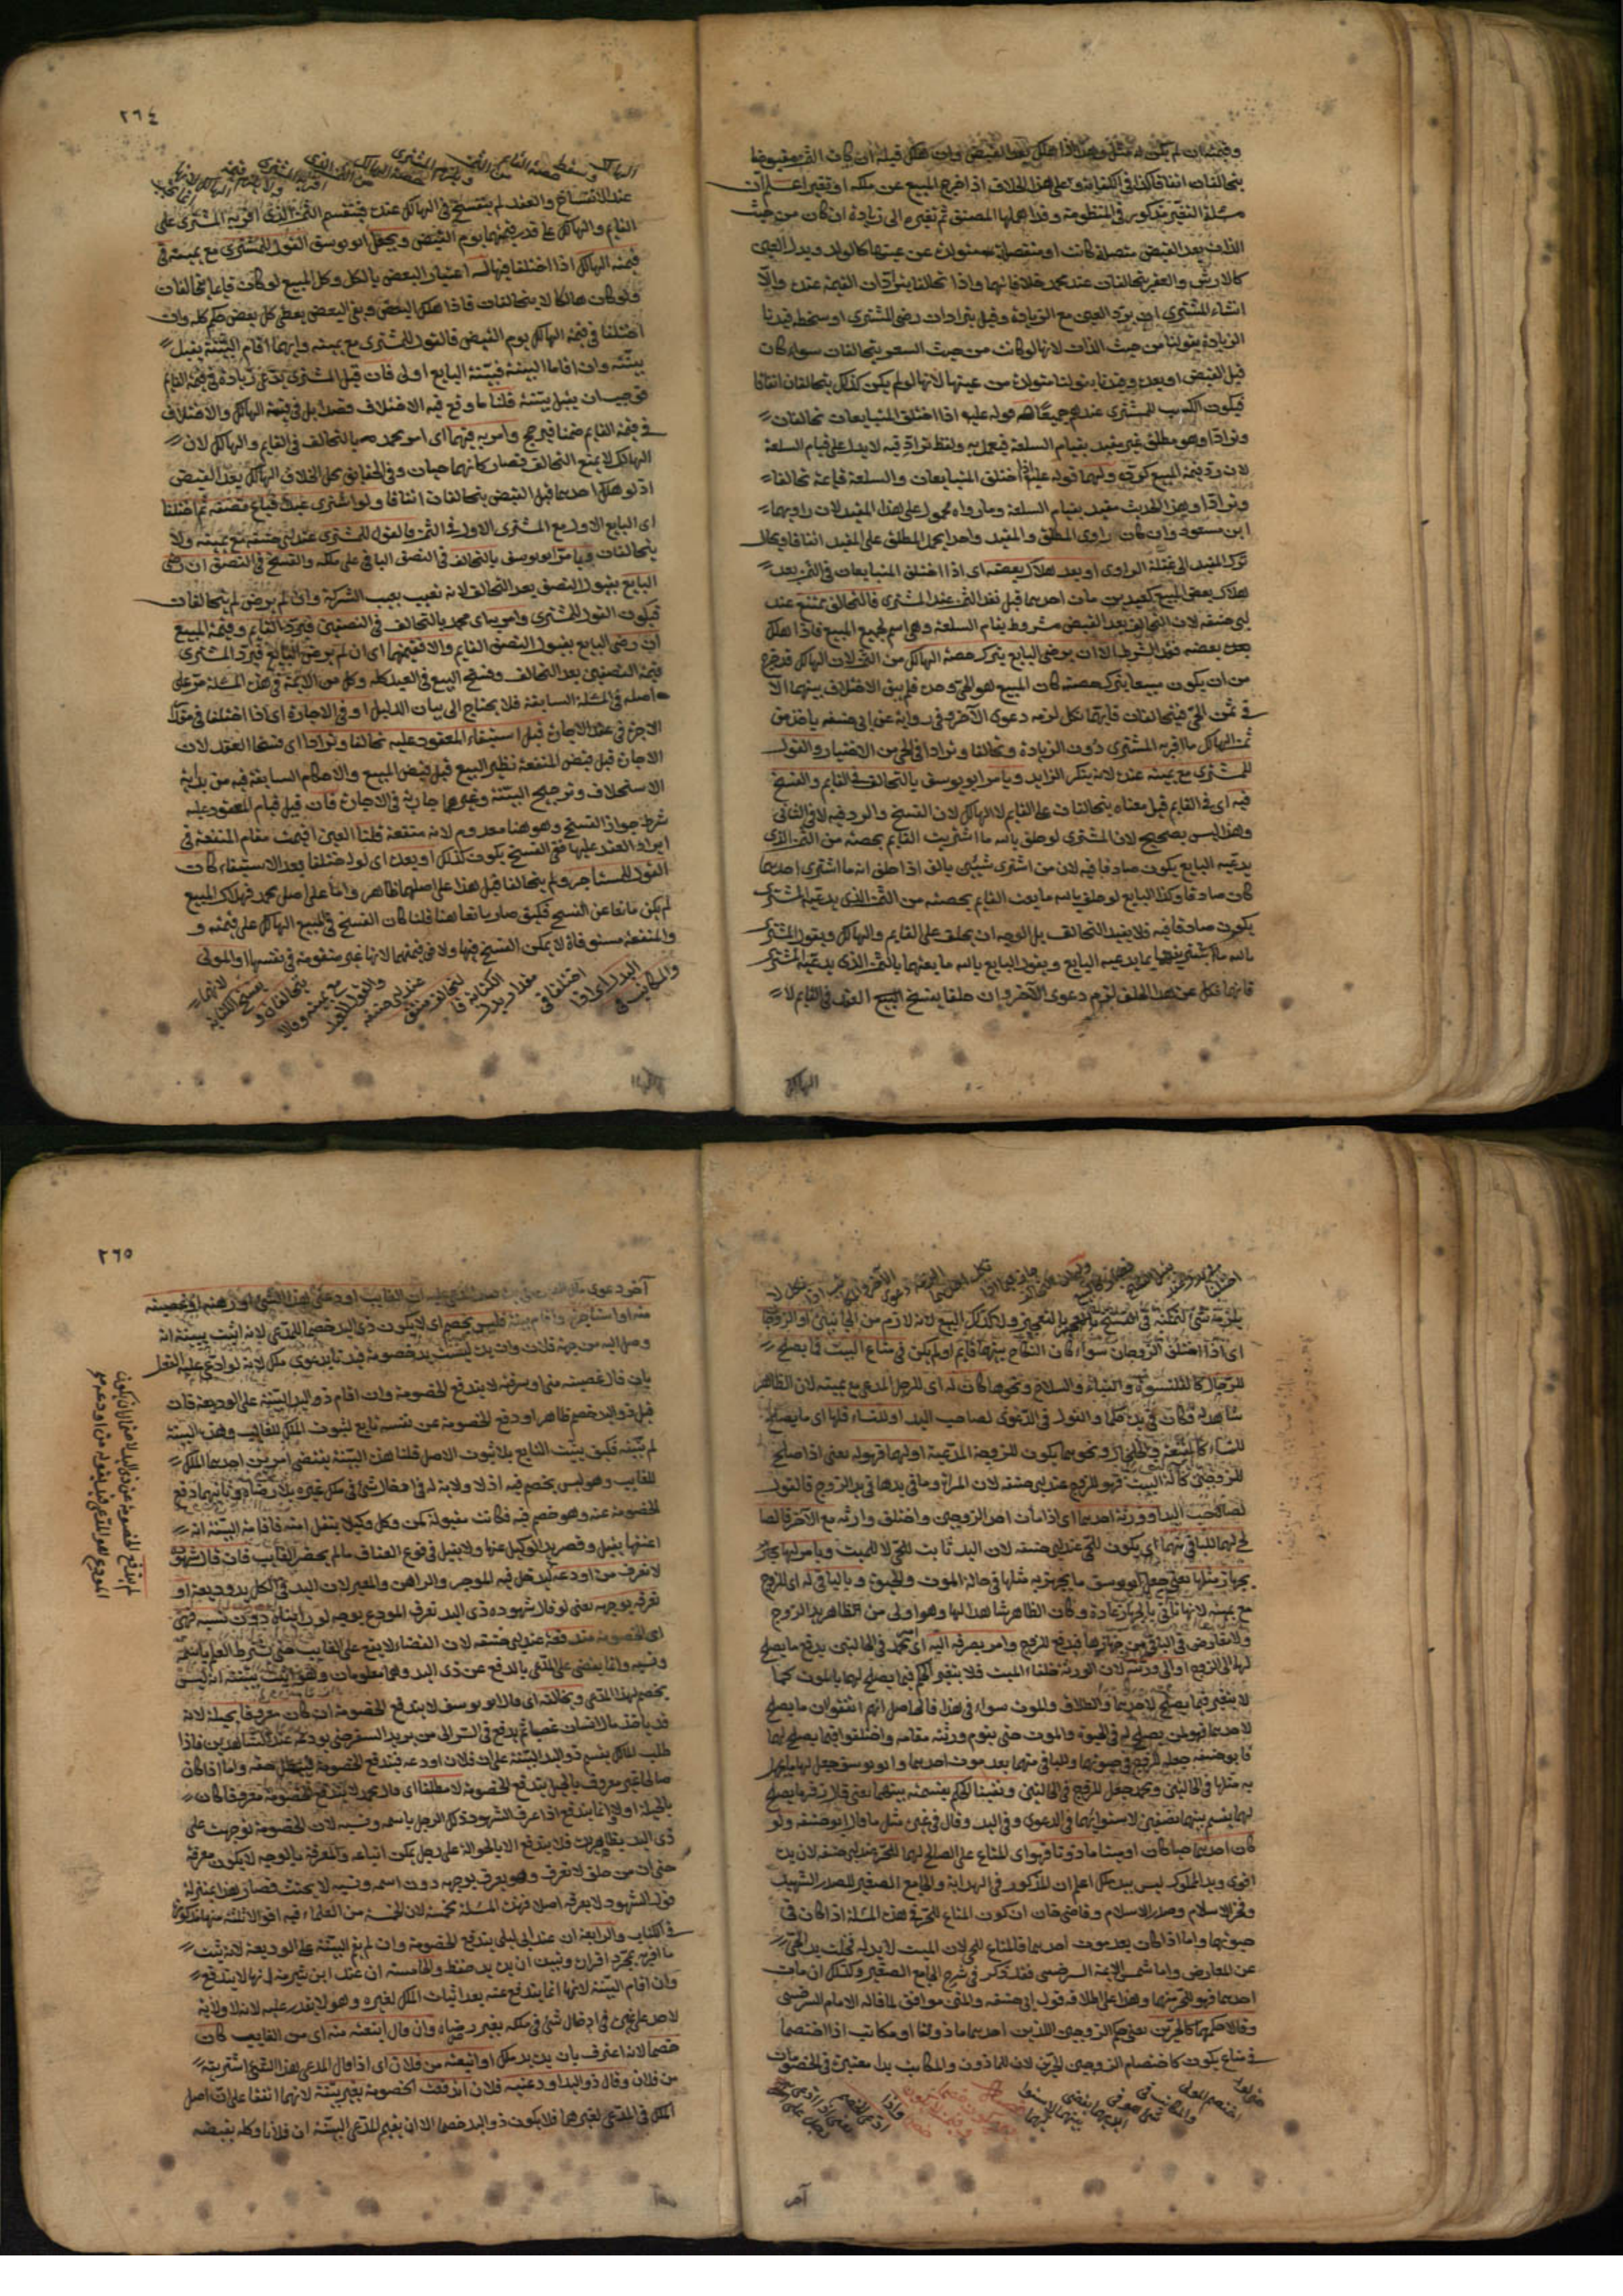 وقيمته ان لم يكن له مثل وهذا اذا هلك بعد القبض وان هلك قبله ان كان الثمن مقبوضا
يتحالفان اتفاقا كذا في الكفاية وعلى هذا الخلاف اذا خرج المبيع عن ملكه او تغير اعلم ان
مسئلة التغير مذكور في المنظومة وقد اهملها المصنف ثم تغيره الى زيادة ان كان من حيث
الذات بعد القبض متصلة كانت او منفصلة متولدة عن عينها كالولد وبدل العين
كالارش والعقر يتحالفان عند محمد خلافا لهما واذا تحالفا يترادان القيمة عنده والا
ان شاء المشتري ان يرد العين مع الزيادة وقيل يترادان رضي المشتري او سخط قيدنا
الزيادة بقولنا من حيث الذات لانها لو كانت من حيث السعر يتحالفان سواء كان
قبل القبض او بعده وقيدنا بقولنا متولدة من عينها لانها لو لم يكن كذلك يتحالفان اتفاقا
فيكون الكسب للمشتري عندهم جميعا له قوله عليه اذا اختلف المتبايعان تحالفا
وترادا وهو مطلق غير مقيد بقيام السلعة فيعمل به ولفظ ترادّ فيه لا يدل على قيام السلعة
لان رد قيمة المبيع كرده ولهما قوله عليه اذا اختلف المتبايعان والسلعة قائمة تحالفا
وترادا وهذا الحديث مقيد بقيام السلعة وما رواه محمول على هذا المقيد لان راويهما
ابن مسعود وان كان راوي المطلق والمقيد واحدا يحمل المطلق على المقيد اتفاقا ويحال
ترك المقيد الى غفلة الراوي او بعد هلاك بعضه اي اذا اختلف المتبايعان في الثمن بعد
هلاك بعض المبيع كعبدين مات احدهما قبل نقد الثمن عند المشتري فالتحالف ممتنع عند
ابي حنيفة لان التحالف بعد القبض مشروط بقيام السلعة وهي اسم لجميع المبيع فاذا هلك
بعده بعضه فقد الشرط الا ان يرضى البايع بترك حصة الهالك من الثمن لان الهالك قد خرج
من ان يكون مبيعا بترك حصته كان المبيع هو الحي وحده فلم يبق الاختلاف بينهما الا
في ثمن الحي فيتحالفان فايهما نكل لزمه دعوى الآخر وفي رواية عن ابي حنيفة ياخذ من
ثمن الهالك ما اقر به المشتري دون الزيادة وتحالفا وترادا في الحي من الاختيار والقول
للمشتري مع يمينه عنده لانه ينكر الزايد ويامر ابو يوسف بالتحالف في القايم والفسخ
فيه اي في القايم قيل معناه يتحالفان على القايم لا الهالك لان الفسخ والرد فيه لا في الفاني
وهذا ليس بصحيح لان المشتري لو حلف بالله ما اشتريت القايم بحصته من الثمن الذي
يدعيه البايع يكون صادقا فيه لان من اشترى شيئين بالف اذا حلف انه ما اشترى احدهما
كان صادقا وكذا البايع لو حلف بالله ما بعت القايم بحصته من الثمن الذي يدعيه المشتري
يكون صادقا فيه فلا يفيد التحالف بل الوجه ان يحلف على القايم والهالك ويقول المشتري
بالله ما اشتريتهما بما يدعيه البايع ويقول البايع بالله ما بعتهما بالثمن الذي يدعيه المشتري
فايهما نكل عن هذا الحلف لزم دعوى الآخر وان حلفا يفسخ البيع العقد في القايم لا
الهالك
٢٦٤
الهالك وسقط حصة القايم من الثمن ويلزم المشتري حصة الهالك
عند الانفساخ والعقد لم ينفسخ في الهالك عنده فينقسم الثمن الذي اقر به المشتري على
القايم والهالك على قدر قيمتهما يوم القبض ويجعل ابو يوسف القول للمشتري مع يمينه في
قيمة الهالك اذا اختلفا فيها له اعتبار البعض بالكل وكل المبيع لو كان قايما يتحالفان
ولو كان هالكا لا يتحالفان فاذا هلك البعض وبقي البعض يعطى كل بعض حكم كله وان
اختلفا في قيمة الهالك يوم القبض فالقول للمشتري مع يمينه وايهما اقام البينة يقبل
بينته وان اقاما البينة فبينة البايع اولى فان قيل المشتري يدعي زيادة في قيمة القايم
فوجب ان يقبل بينته قلنا ما وقع فيه الاختلاف قصدا بل في قيمة الهالك والاختلاف
في قيمة القايم ضمنا فيرجح وامر به فيهما اي امر محمد بالتحالف في القايم والهالك لان
الهالك لا يمنع التحالف فصار كانهما حيان وفي الحقايق محل الخلاف الهالك بعد القبض
اذ لو هلك احدهما قبل القبض يتحالفان اتفاقا ولو اشترى عبدا فباع نصفه ثم اختلفا
اي البايع الاول مع المشتري الاول في الثمن فالقول للمشتري عند ابي حنيفة مع يمينه ولا
يتحالفان ويامر ابو يوسف بالتحالف في النصف الباقي على ملكه والفسخ في النصف ان رضي
البايع بقبول النصف بعد التحالف لانه تعيب بعيب الشركة وان لم يرض لم يتحالفان
فيكون القول للمشتري وامر به اي محمد بالتحالف في النصفين فيرد القايم وقيمة المبيع
ان رضي البايع بقبول النصف القايم والا فقيمتهما اي ان لم يرض البايع فيرد المشتري
قيمة النصفين بعد التحالف وفسخ البيع في العبد كله وكل من الائمة في هذه المسئلة مر على
اصله في المسئلة السابقة فلا يحتاج الى بيان الدليل او في الاجارة اي اذا اختلفا في مقدار
الاجرة في عقد الاجارة قبل استيفاء المعقود عليه تحالفا وترادا اي فسخا العقد لان
الاجارة قبل قبض المنفعة نظير البيع قبل قبض المبيع والاحكام السابقة فيه من بداية
الاستحلاف وترجيح البينة وغيرهما جارية في الاجارة فان قيل قيام المعقود عليه
شرط جواز الفسخ وهو هنا معدوم لانه منفعة قلنا العين اقيمت مقام المنفعة في
ايراد العقد عليها ففي الفسخ يكون كذلك او بعده اي لو اختلفا بعد الاستيفاء كان
القول للمستاجر ولم يتحالفا قيل هذا على اصلهما ظاهر واما على اصل محمد فهلاك المبيع
لم يكن مانعا عن الفسخ فكيف صار مانعا هنا قلنا كان الفسخ في المبيع الهالك على قيمته و
والمنفعة مستوفاة لا يمكن الفسخ فيها ولا في قيمتها لانها غير متقومة في نفسها او المولى
والمكاتب في البدل اي اذا اختلفا في مقدار بدل الكتابة فالتحالف منتف عند ابي حنيفة والقول للعبد مع يمينه وقالا يتحالفان ويفسخ الكتابة لانهما
يلزمه شيء لتمكنه في الفسخ بالتعجيز ولا كذلك البيع لانه لازم من الجانبين او الزوجان
اي اذا اختلف الزوجان سواء كان النكاح بينهما قايم او لم يكن في متاع البيت فما يصلح
للرجال كالقلنسوة والقباء والسلاح ونحوها كان له اي للرجل المدعي مع يمينه لان الظاهر
شاهد له وكان في يده حكما والقول في الدعوى لصاحب اليد او للنساء فلها اي ما يصلح
للنساء كالمقنعة والخلخال ونحوهما يكون للزوجة المدعية او لهما فهو له يعني اذا صلح
للزوجين كآلة البيت فهو للزوج عند ابي حنيفة لان المراة وما في يدها في يد الزوج فالقول
لصاحب اليد او ورثة احدهما اي اذا مات احد الزوجين واختلف وارثه مع الآخر فالصا
لح لهما للباقي منهما اي يكون للحي عند ابي حنيفة لان اليد ثابت للحي لا للميت ويامر لها بجهاز
بجهاز مثلها يعني جعل ابو يوسف ما يجهز به مثلها في حالة الموت والحيوة والباقي له اي للزوج
مع يمينه لانها تاتي بالجهاز عادة وكان الظاهر شاهدا لها وهو اولى من الظاهر بيد الزوج
ولا معارض في الباقي من جهازها فيدفع للزوج وامر بصرفه اليه اي محمد في الحالتين يدفع ما يصلح
لهما الى الزوج او الى ورثته لان الورثة خلفاء الميت فلا يتغير الحكم فيما يصلح لهما بالموت كما
لا يتغير فيما يصلح لاحدهما والطلاق والموت سواء في هذا فالحاصل انهم اتفقوا ان ما يصلح
لاحدهما فهو لمن يصلح له في الحيوة والموت حتى يقوم ورثته مقامه واختلفوا فيما يصلح لهما
فابو حنيفة جعله للزوج في حيوتهما وللباقي منهما بعد موت احدهما وابو يوسف جعل لها ما يجهز
به مثلها في الحالتين ومحمد جعل للزوج في الحالتين ونفينا الحكم بقسمته بينهما يعني قال زفر ما يصلح
لهما يقسم بينهما نصفين لاستوائهما في الدعوى وفي اليد وقال في غيره مثل ما قال ابو حنيفة ولو
كان احدهما مملوكا او مستامنا ماذونا فهو اي المتاع على الصالح لهما للحر عند ابي حنيفة لان يده
اقوى ويد المملوك ليس بيد ملك اعلم ان المذكور في الهداية والجامع الصغير للصدر الشهيد
وفخر الاسلام وصدر الاسلام وقاضي خان ان كون المتاع للحر في هذه المسئلة اذا كان في
حيوتهما واما اذا كان بعد موت احدهما فالمتاع للحي لان الميت لا يد له فخلت يد الحي
عن المعارض واما شمس الائمة السرخسي فقد ذكر في شرح الجامع الصغير وكذلك ان مات
احدهما فهو للحر منهما وهذا على اطلاقه قول ابي حنيفة والمتن موافق لما قاله الامام السرخسي
وقالا حكمهما كالحرين يعني حكم الزوجين اللذين احدهما ماذونا او مكاتب اذا اختصما
في متاع يكون كاختصام الزوجين الحرين لان للماذون والمكاتب يدا معتبرة في الخصومات
آخر
٢٦٥
منه او استاجره واقام بينة فليس بخصم اي لا يكون ذو اليد خصما للمدعي لانه اثبت ببينة انه
وصل اليه من جهة فلان وان يده ليست يد خصومة قيدنا بدعوى ملك لانه لو ادعى عليه الفعل
بان قال غصبته مني او سرقته لا يندفع الخصومة وان اقام ذو اليد البينة على الوديعة فان
قيل ذو اليد خصم ظاهر او دفع الخصومة عن نفسه تابع لثبوت الملك للغايب وهذه البينة
لم تثبته فكيف يثبت التابع بلا ثبوت الاصل قلنا هذه البينة يقتضي امرين احدهما الملك
للغايب وهو ليس بخصم فيه اذ لا ولاية له في ادخال شيء في ملك غيره بلا رضاه وثانيهما دفع
الخصومة عنه وهو خصم فيه فكانت مقبولة كمن وكل وكيلا بنقل امته فاقامة البينة انه
اعتقها يقبل وقصر يد الوكيل عنها ولا يقبل في وقوع العتاق ما لم يحضر الغايب فان قال شهوده
لا نعرف من اودعه ليدخل فيه الموجر والراهن والمعير لان اليد في الكل يد وديعة او
نعرفه بوجهه يعني لو قال شهوده ذي اليد نعرف المودع بوجهه لو رايناه دون نسبه فهي
اي الخصومة مندفعة عند ابي حنيفة لان القضاء لا يقع على الغايب حتى شرط العلم باسمه
ونسبه وانما يقضي على المدعي بالدفع عن ذي اليد وهما معلومان وهو اثبت ببينته انه ليس
بخصم لهذا المدعي ويخالفه اي قال ابو يوسف لا يندفع الخصومة ان كان معروفا بحيلة لانه
قد ياخذ مال انسان غصبا ثم يدفع في السر الى من يريد السفر حتى يودعه عند الشاهدين فاذا
طلب المالك يقيم ذو اليد البينة على ان فلان اودعه فتندفع الخصومة فيبطل حقه واما اذا كان
صالحا غير معروف بالحيل يندفع الخصومة لا مطلقا اي قال محمد لا يندفع الخصومة معروفا كان
بالحيلة او لا وانما يندفع اذا عرف الشهود ذلك الرجل باسمه ونسبه لان الخصومة توجهت على
ذي اليد بظاهر يده فلا يندفع الا بالحوالة على رجل يمكن اتباعه والمعرفة بالوجه لا يكون معرفة
حتى ان من حلف لا نعرف وهو يعرف بوجهه دون اسمه ونسبه لا يحنث فصار هذا بمنزلة
قول الشهود لا يعرفه اصلا فهذه المسئلة مخمسة لان الخمسة من العلماء فيه اقوالا ثلثة منها مذكورة
في الكتاب والرابعة ان عند ابي ليلى يندفع الخصومة وان لم يقم البينة على الوديعة لانه يثبت
ما اقر به بمجرد اقراره وتبين ان يده يد حفظ والخامسة ان عند ابن شبرمة انها لا يندفع
وان اقام البينة لانها انما يندفع عنه بعد اثبات الملك لغيره وهو لا يقدر عليه لانه لا ولاية
لاحد على غيره في ادخال شيء في ملكه بغير رضاه وان قال ابتعته منه اي من الغايب كان
خصما لانه اعترف بان يده يد ملك او ابتعته من فلان اي اذا قال المدعي هذا الشيء اشتريته
من فلان وقال ذو اليد اودعنيه فلان اندفعت الخصومة بغير بينة لانهما اتفقا على ان اصل
الملك في المدعى لغيرهما فلا يكون ذو اليد خصما الا ان يقيم المدعي البينة ان فلانا وكله بقبضه